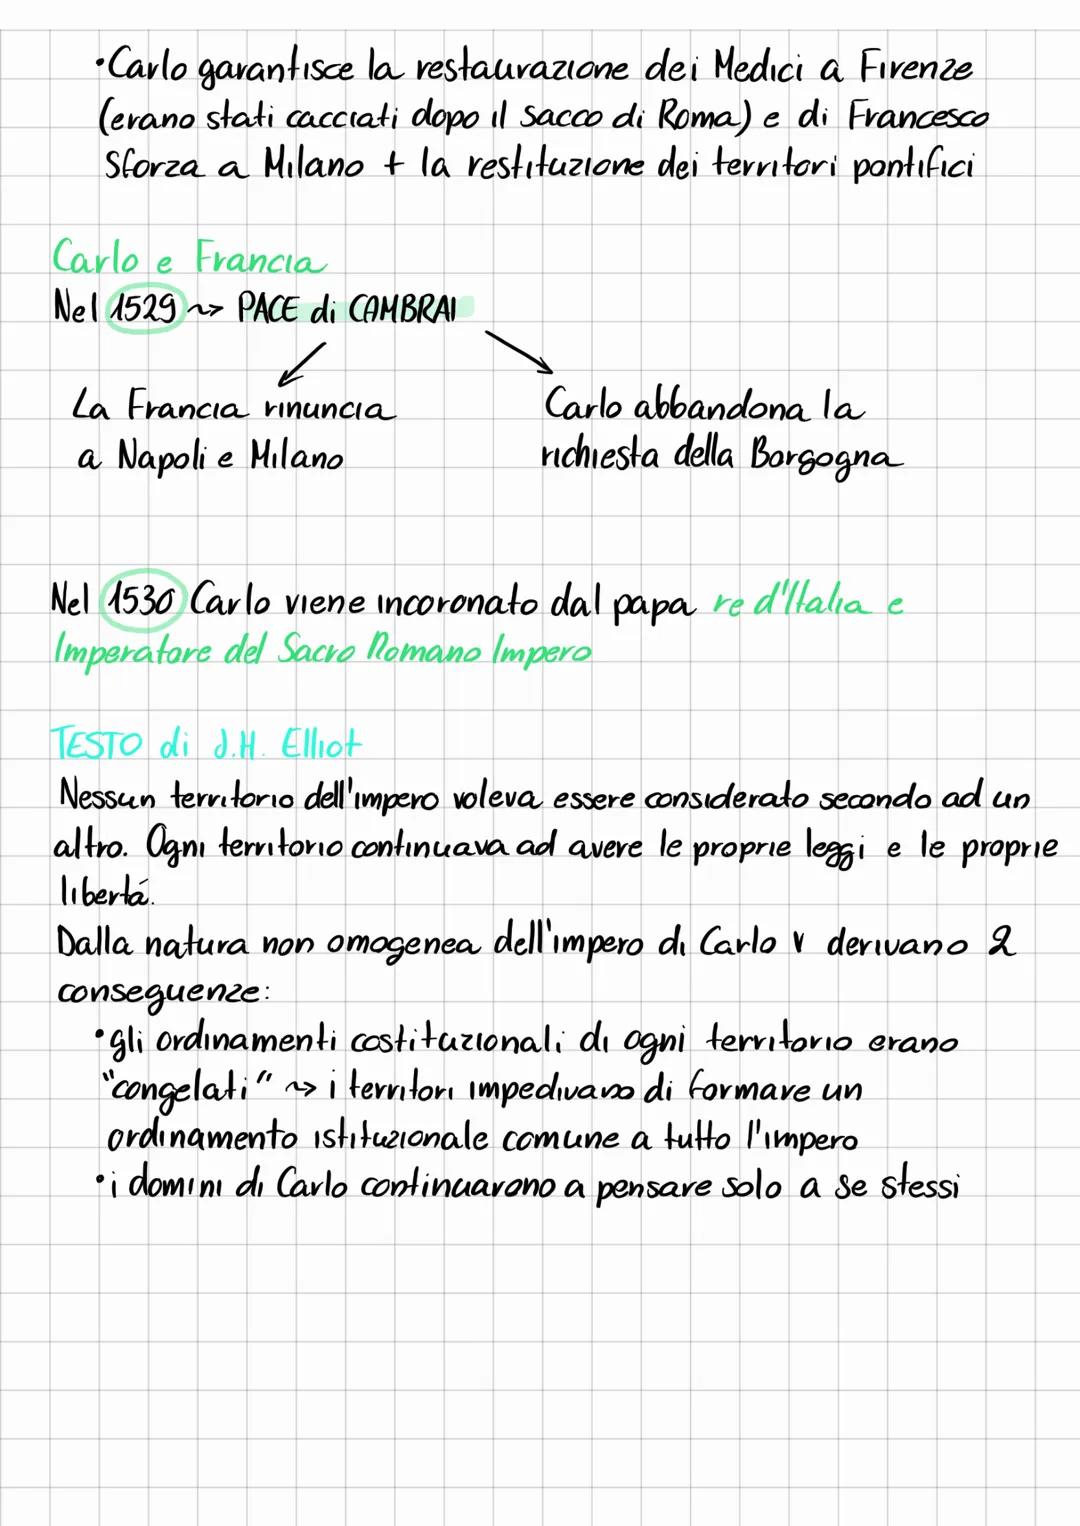 •Carlo garantisce la restaurazione dei Medici a Firenze
(erano stati cacciati dopo il Sacco di Roma) e di Francesco
Sforza a Milano + la restituzione dei territori pontifici
Carlo e Francia
Nel 1529 ~> PACE di CAMBRAI
La Francia rinuncia
a Napoli e Milano
Carlo abbandona la
richiesta della Borgogna
Nel 1530 Carlo viene incoronato dal papa re d'Italia e
Imperatore del Sacro Romano Impero
TESTO di J.H. Elliot
Nessun territorio dell'impero voleva essere considerato secondo ad un
altro. Ogni territorio continuava ad avere le proprie leggi e le proprie
libertá.
Dalla natura non omogenea dell'impero di Carlo V derivano 2
conseguenze:
•gli ordinamenti costituzionali di ogni territorio erano
"congelati" ~> i territori impedivano di formare un
ordinamento istituzionale comune a tutto l'impero
•i domini di Carlo continuarono a pensare solo a se stessi